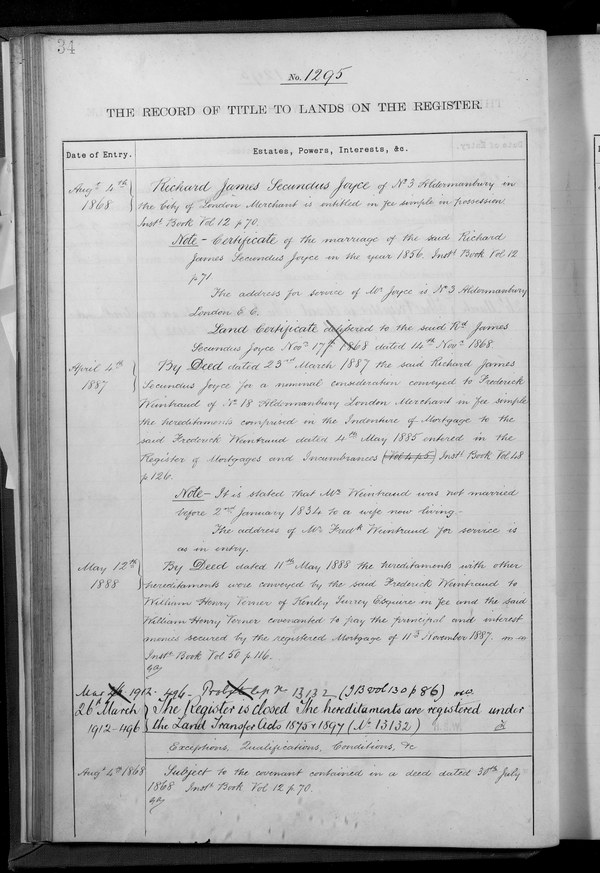 34
No. 1295
THE RECORD OF TITLE TO LANDS ON THE REGISTER.
Date of Entry.
Estates, Powers, Interests, &c.
Augt 4th 1868
Richard James Secundus Joyce of No 3 Aldermanbury in
the City of London Merchant is entitled in fee simple in possession
Instt Book Vol 12 p 70.
Note - Certificate of the marriage of the said Richard
James Secundus Joyce in the year 1856. Instt Book Vol 12
p 71
The address for service of Mr Joyce is No 3 Aldermanbury
London E C.
Land Certificate delivered to the said Rd James
Secundus Joyce Novr 17th 1868 dated 14th Novr 1868
April 4th 1887
By Deed dated 23rd March 1887 the said Richard James
Secundus Joyce for a nominal consideration conveyed to Frederick
Weintraud of No 18 Aldermanbury London Merchant in Fee simple
the hereditaments comprised in the Indenture of Mortgage to the
said Frederick Weintraud dated 4th May 1885 entered in the
Register of Mortgages and Incumbrances (Vol 4 p 5) Instt Book Vol 48
p 126.
Note - It is stated that Mr Weintraud was not married
before 2nd January 1834 to a wife now living.
The address of Mr Fredk Weintraud for service is
as in entry.
May 12th 1888
By Deed dated 11th May 1888 the hereditaments with other
hereditaments were conveyed by the said Frederick Weintraud to
William Henry Verner of Kenley Surrey Esquire in fee and the said
William Henry Verner covenanted to pay the principal and interest
monies secured by the registered Mortgage of 11th November 1887.
Instt Book Vol 50 p 116.
1912 - 496 - 13132 (IB vol 130 p 86)
26th March 1912 - 496
The Register is closed The hereditaments are registered under
the Land Transfer Acts 1875 & 1897 (No 13132)
Exceptions, Qualifications, Conditions, &c
Augt 4th 1868
Subject to the covenant contained in a deed dated 30th July
1868 Instt Book Vol 12 p 70.